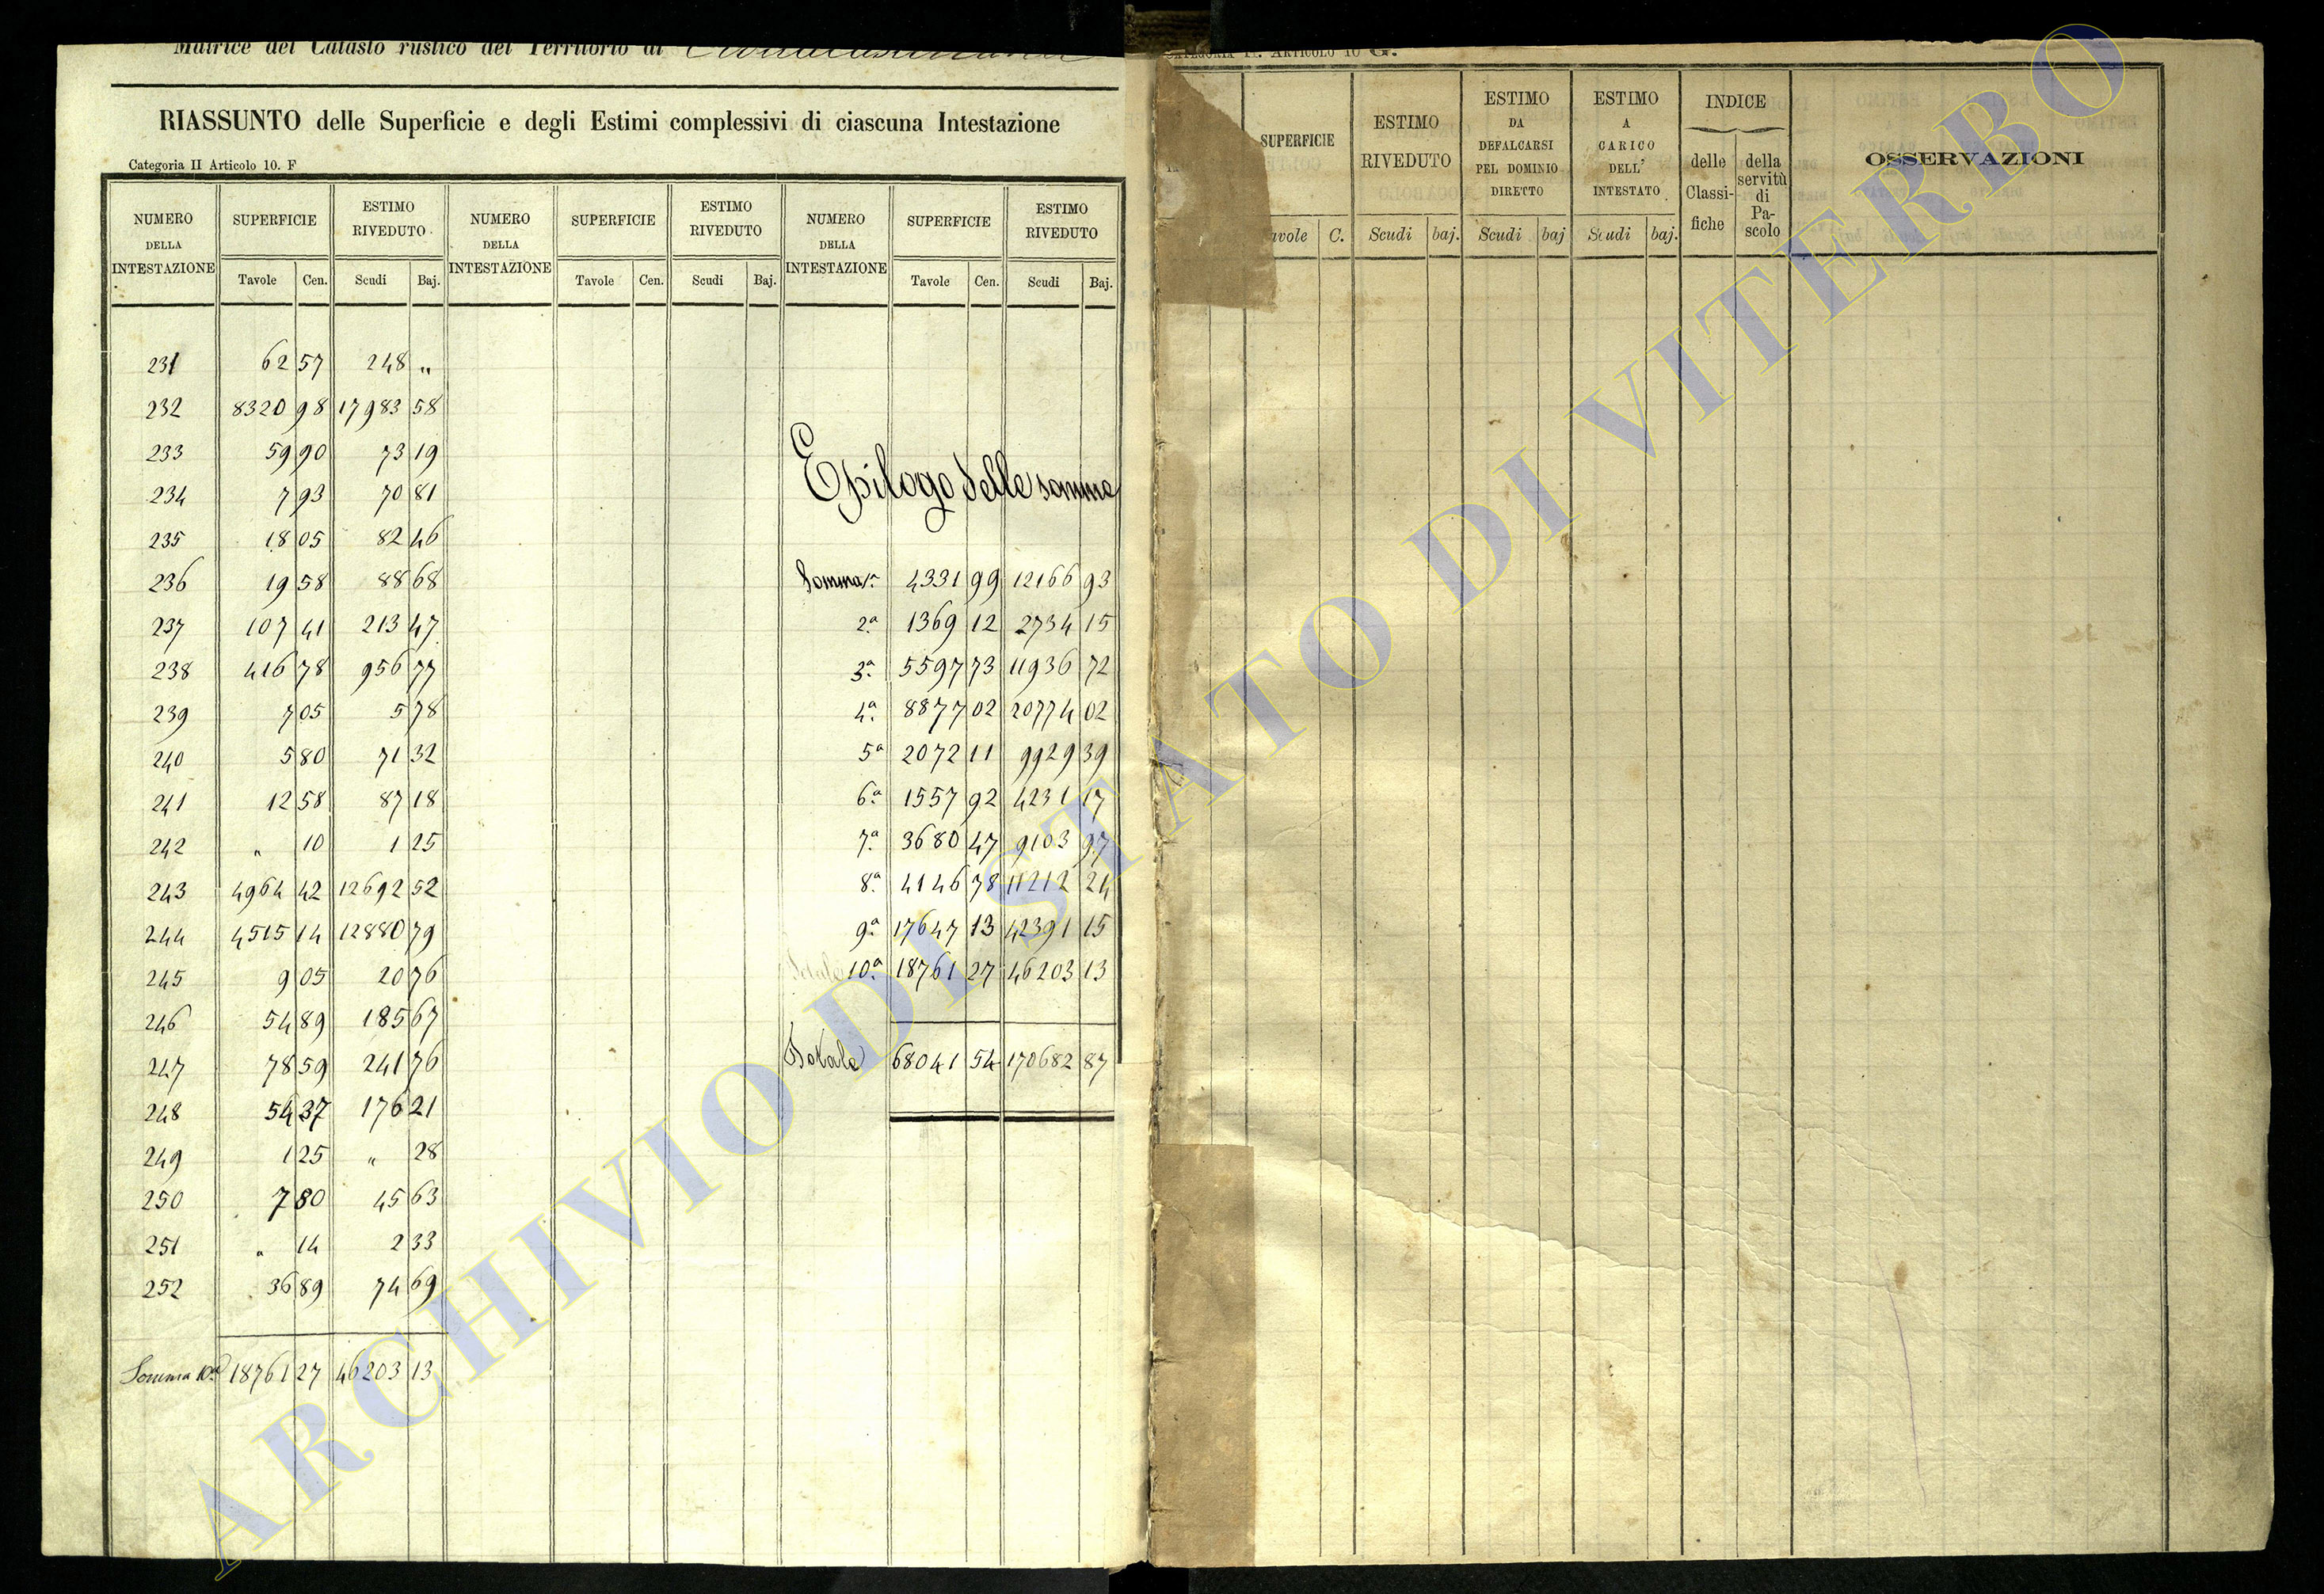 Matrice del Catasto rustico del Territorio di
RIASSUNTO delle Superficie e degli Estimi complessivi di ciascuna Intestazione
Categoria II Articolo 10. F
NUMERO DELLA INTESTAZIONE SUPERFICIE ESTIMO RIVEDUTO NUMERO DELLA INTESTAZIONE SUPERFICIE ESTIMO RIVEDUTO NUMERO DELLA INTESTAZIONE SUPERFICIE ESTIMO RIVEDUTO
Tavole Cen. Scudi Baj. Tavole Cen. Scudi Baj. Tavole Cen. Scudi Baj.
231 62 57 248 "
232 8320 98 17983 58
233 59 90 73 19
234 7 93 70 81
235 18 05 82 46
236 19 58 88 68
237 107 41 213 47
238 416 78 956 77
239 7 05 5 78
240 5 80 71 32
241 12 58 87 18
242 " 10 1 25
243 4964 42 12692 52
244 4515 14 12880 79
245 9 05 20 76
246 54 89 185 67
247 78 59 241 76
248 54 37 176 21
249 1 25 " 28
250 7 80 45 63
251 " 14 2 33
252 36 89 74 69
Somma 10ª 18761 27 46203 13
Epilogo delle somme
Somma 1ª 4331 99 12166 93
2ª 1369 12 2734 15
3ª 5597 73 11936 72
4ª 8877 02 20774 02
5ª 2072 11 9929 39
6ª 1557 92 4231 17
7ª 3680 47 9103 97
8ª 4146 78 11212 24
9ª 17647 13 42391 15
10ª 18761 27 46203 13
Totale 68041 54 170682 87
ARTICOLO 10 G.
SUPERFICIE ESTIMO RIVEDUTO ESTIMO DA DEFALCARSI PEL DOMINIO DIRETTO ESTIMO A CARICO DELL' INTESTATO INDICE OSSERVAZIONI
delle Classi-fiche della servitù di Pa-scolo
C. Scudi baj. Scudi baj Scudi baj.
ARCHIVIO DI STATO DI VITERBO